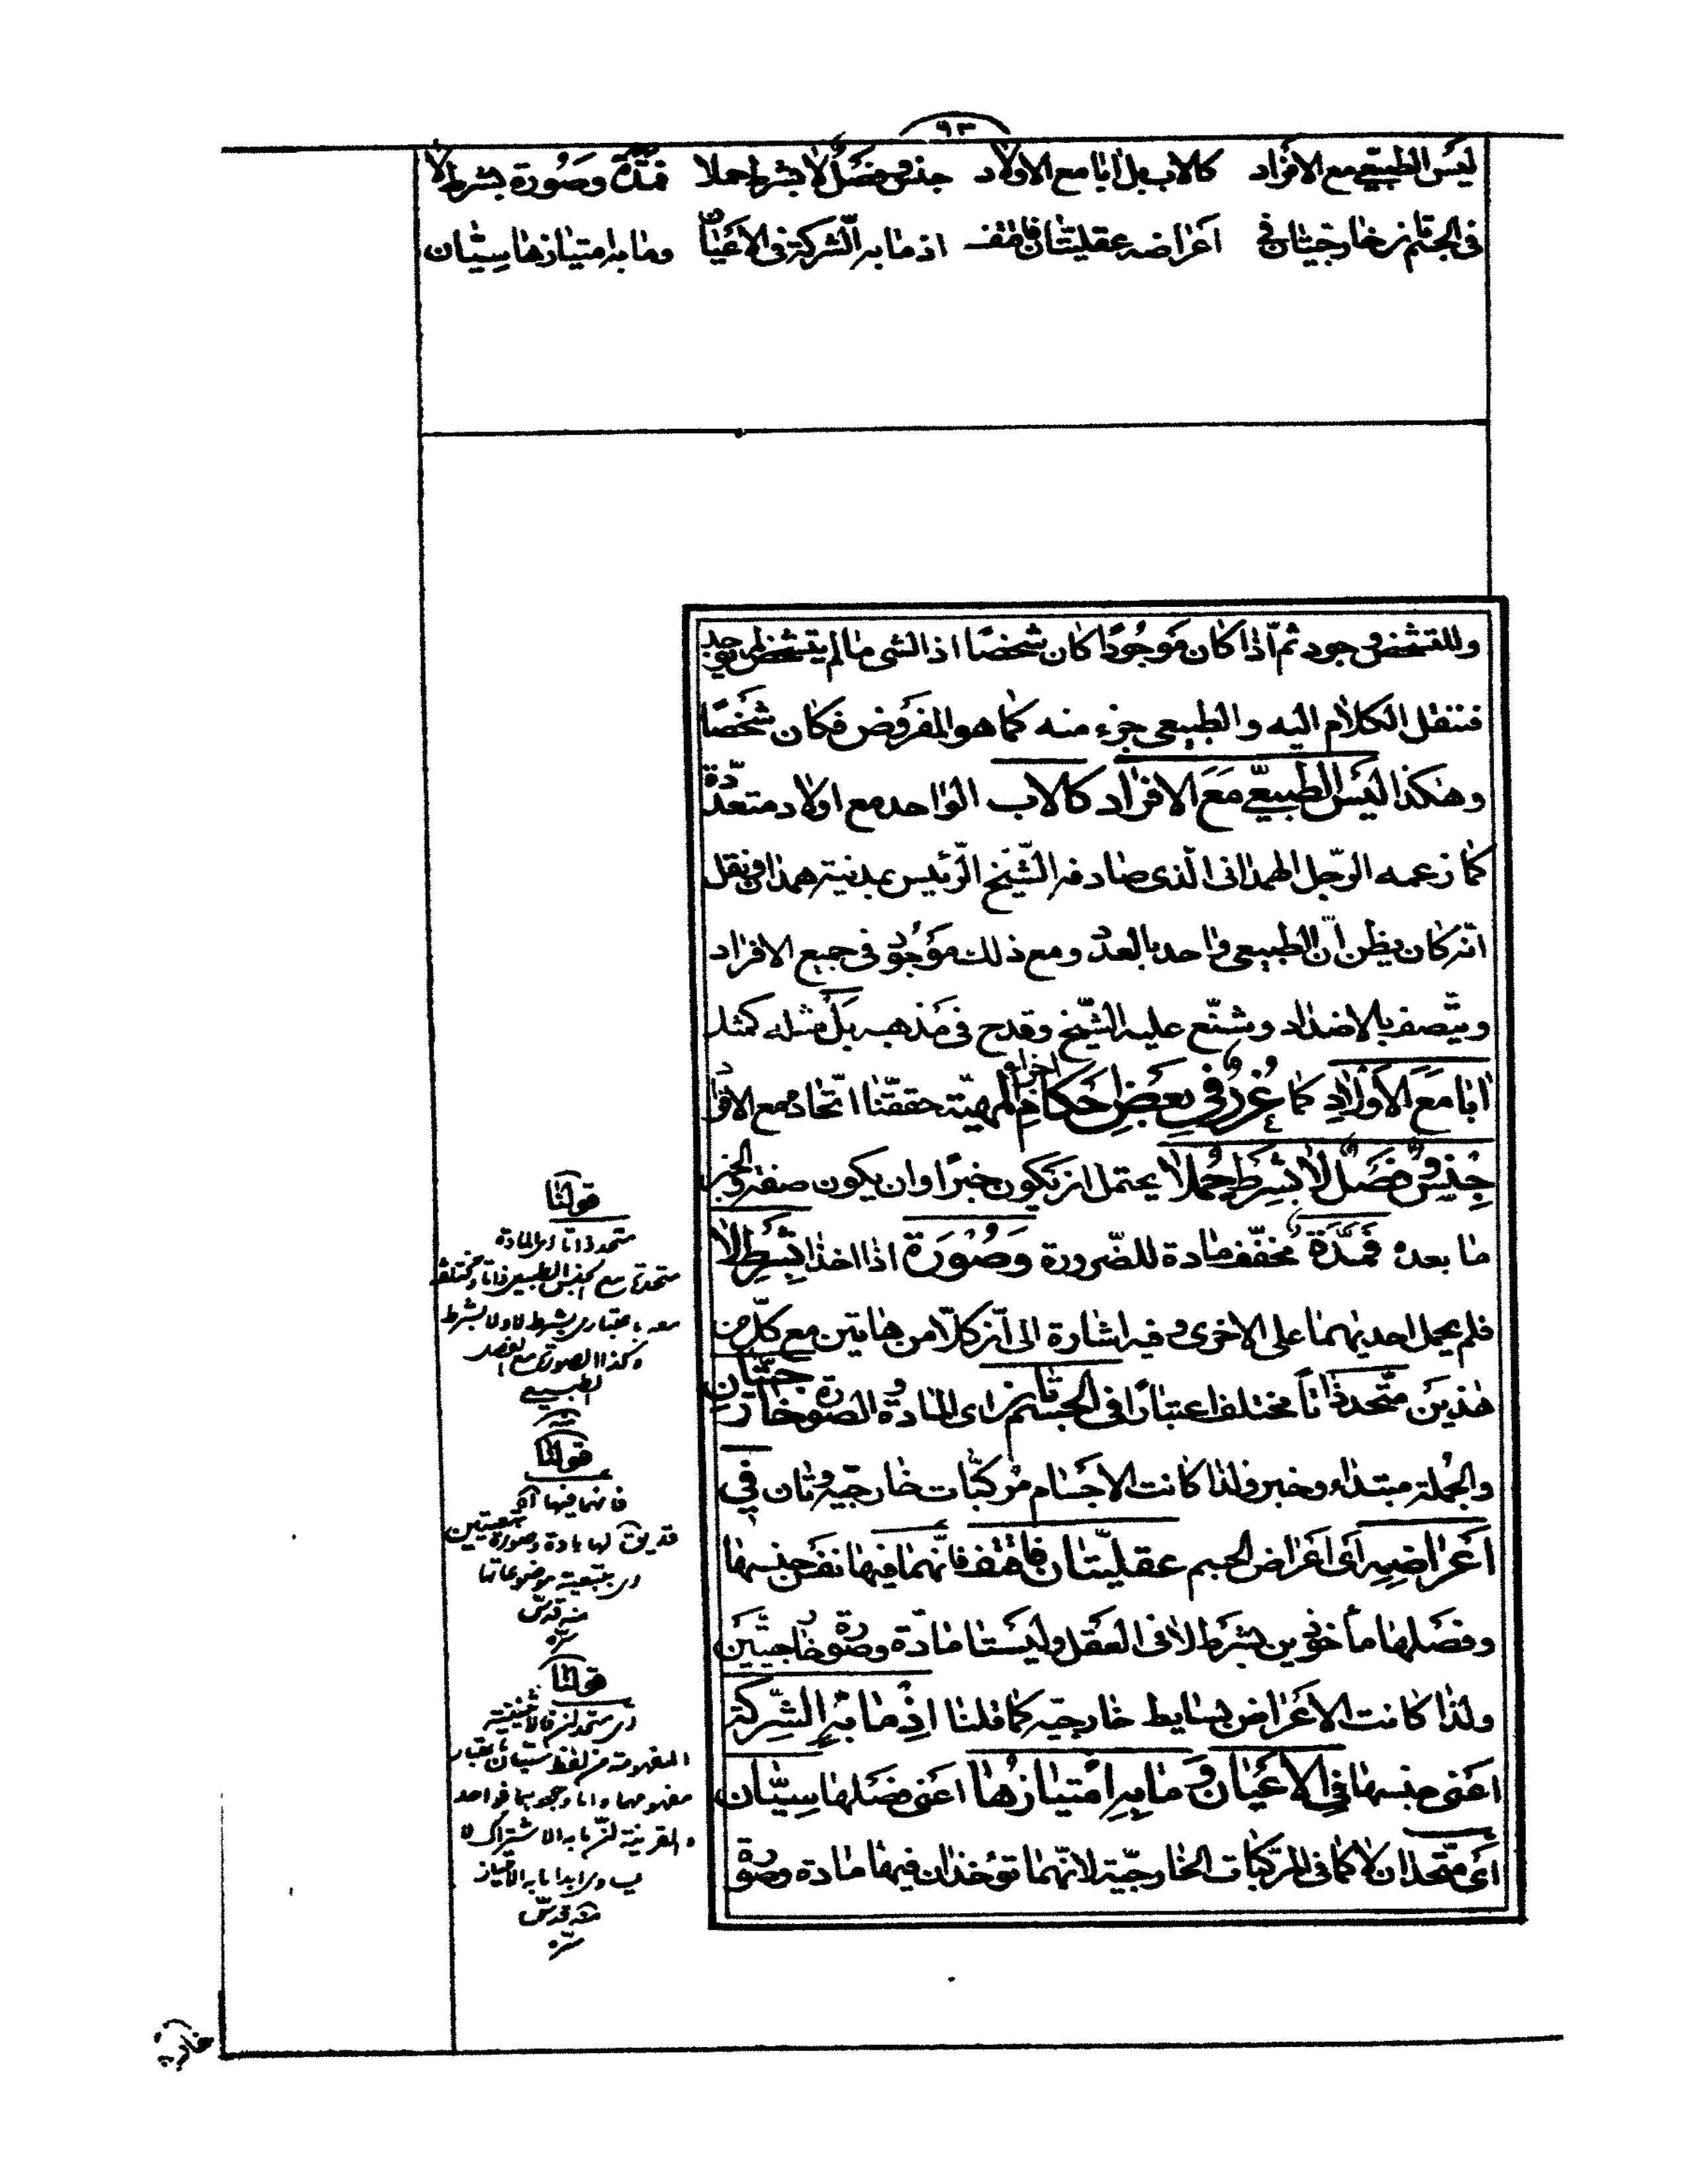 ٩٣
ليس الطبيعي مع الافراد كالاب بل ابا مع الاولاد جنس وفصل لا بشرط حملا فمدة وصورة بشرط لا
في الجسم تان خارجيتان في اعراضه عقليتان فاقتف اذ ما به الشركة في الاعيان وما به امتيازها سيان
وللتشخص وجود ثم اذا كان موجودا كان شخصا اذ الشي ما لم يتشخص لم يوجد
فننقل الكلام اليه والطبيعي جزء منه كما هو المفروض فكان شخصا
وهكذا ليس الطبيعي مع الافراد كالاب الواحد مع اولاد متعددة
كما زعمه الرجل الهمداني الذي صادفه الشيخ الرئيس بمدينة همدان ونقل
انه كان يظن ان الطبيعي واحد بالعدد ومع ذلك موجود في جميع الافراد
ويتصف بالاضداد وشنع عليه الشيخ وقدح في مذهبه بل مثله كمثل
ابا مع الاولاد كما غرر في بعض احكام اجزاء المهية حققنا اتحاده مع الافراد
جنس وفصل لا بشرط حملا يحتمل ان يكون خبرا وان يكون صفة والخبر
ما بعده فمدة مخفف مادة للضرورة وصورة اذا اخذا بشرط لا
فلم يحمل احديهما على الاخرى وفيه اشارة الى ان كلا من هاتين مع كل من
هذين متحد ذاتا مختلف اعتبارا في الجسم تان اى المادة والصورة خارجيتان
والجملة مبتداء وخبر ولذا كانت الاجسام مركبات خارجية وتان في
اعراضه اى اعراض الجسم عقليتان فاقتف فانهما فيها نفس جنسها
وفصلها مأخوذين بشرط لا في العقل وليستا مادة وصورة خارجيتين
ولذا كانت الاعراض بسايط خارجية كما قلنا اذ ما به الشركة
اعنى جنسها في الاعيان وما به امتيازها اعنى فصلها سيان
اى متحدان لا كما في المركبات الخارجية لانهما تؤخذان فيها مادة وصورة
قولنا
متحد ذاتا اى المادة
متحدة مع الجنس الطبيعى ذاتا ومختلفة
معه باعتبارى بشرط لا ولا بشرط
وكذا الصورة مع الفصل
الطبيعى
منه
قولنا
فانهما فيها اى
قد يق لها مادة وصورة تبعيتين
اى بتبعية موضوعاتها
منه قدس
سره
قولنا
اى متحدان فالاثنينية
المفهومة من لفظ سيان باعتبار
مفهومهما واما وجودهما فواحد
والقرينة ان ما به الاشتراك لا
منه قدس
سره
خارجية